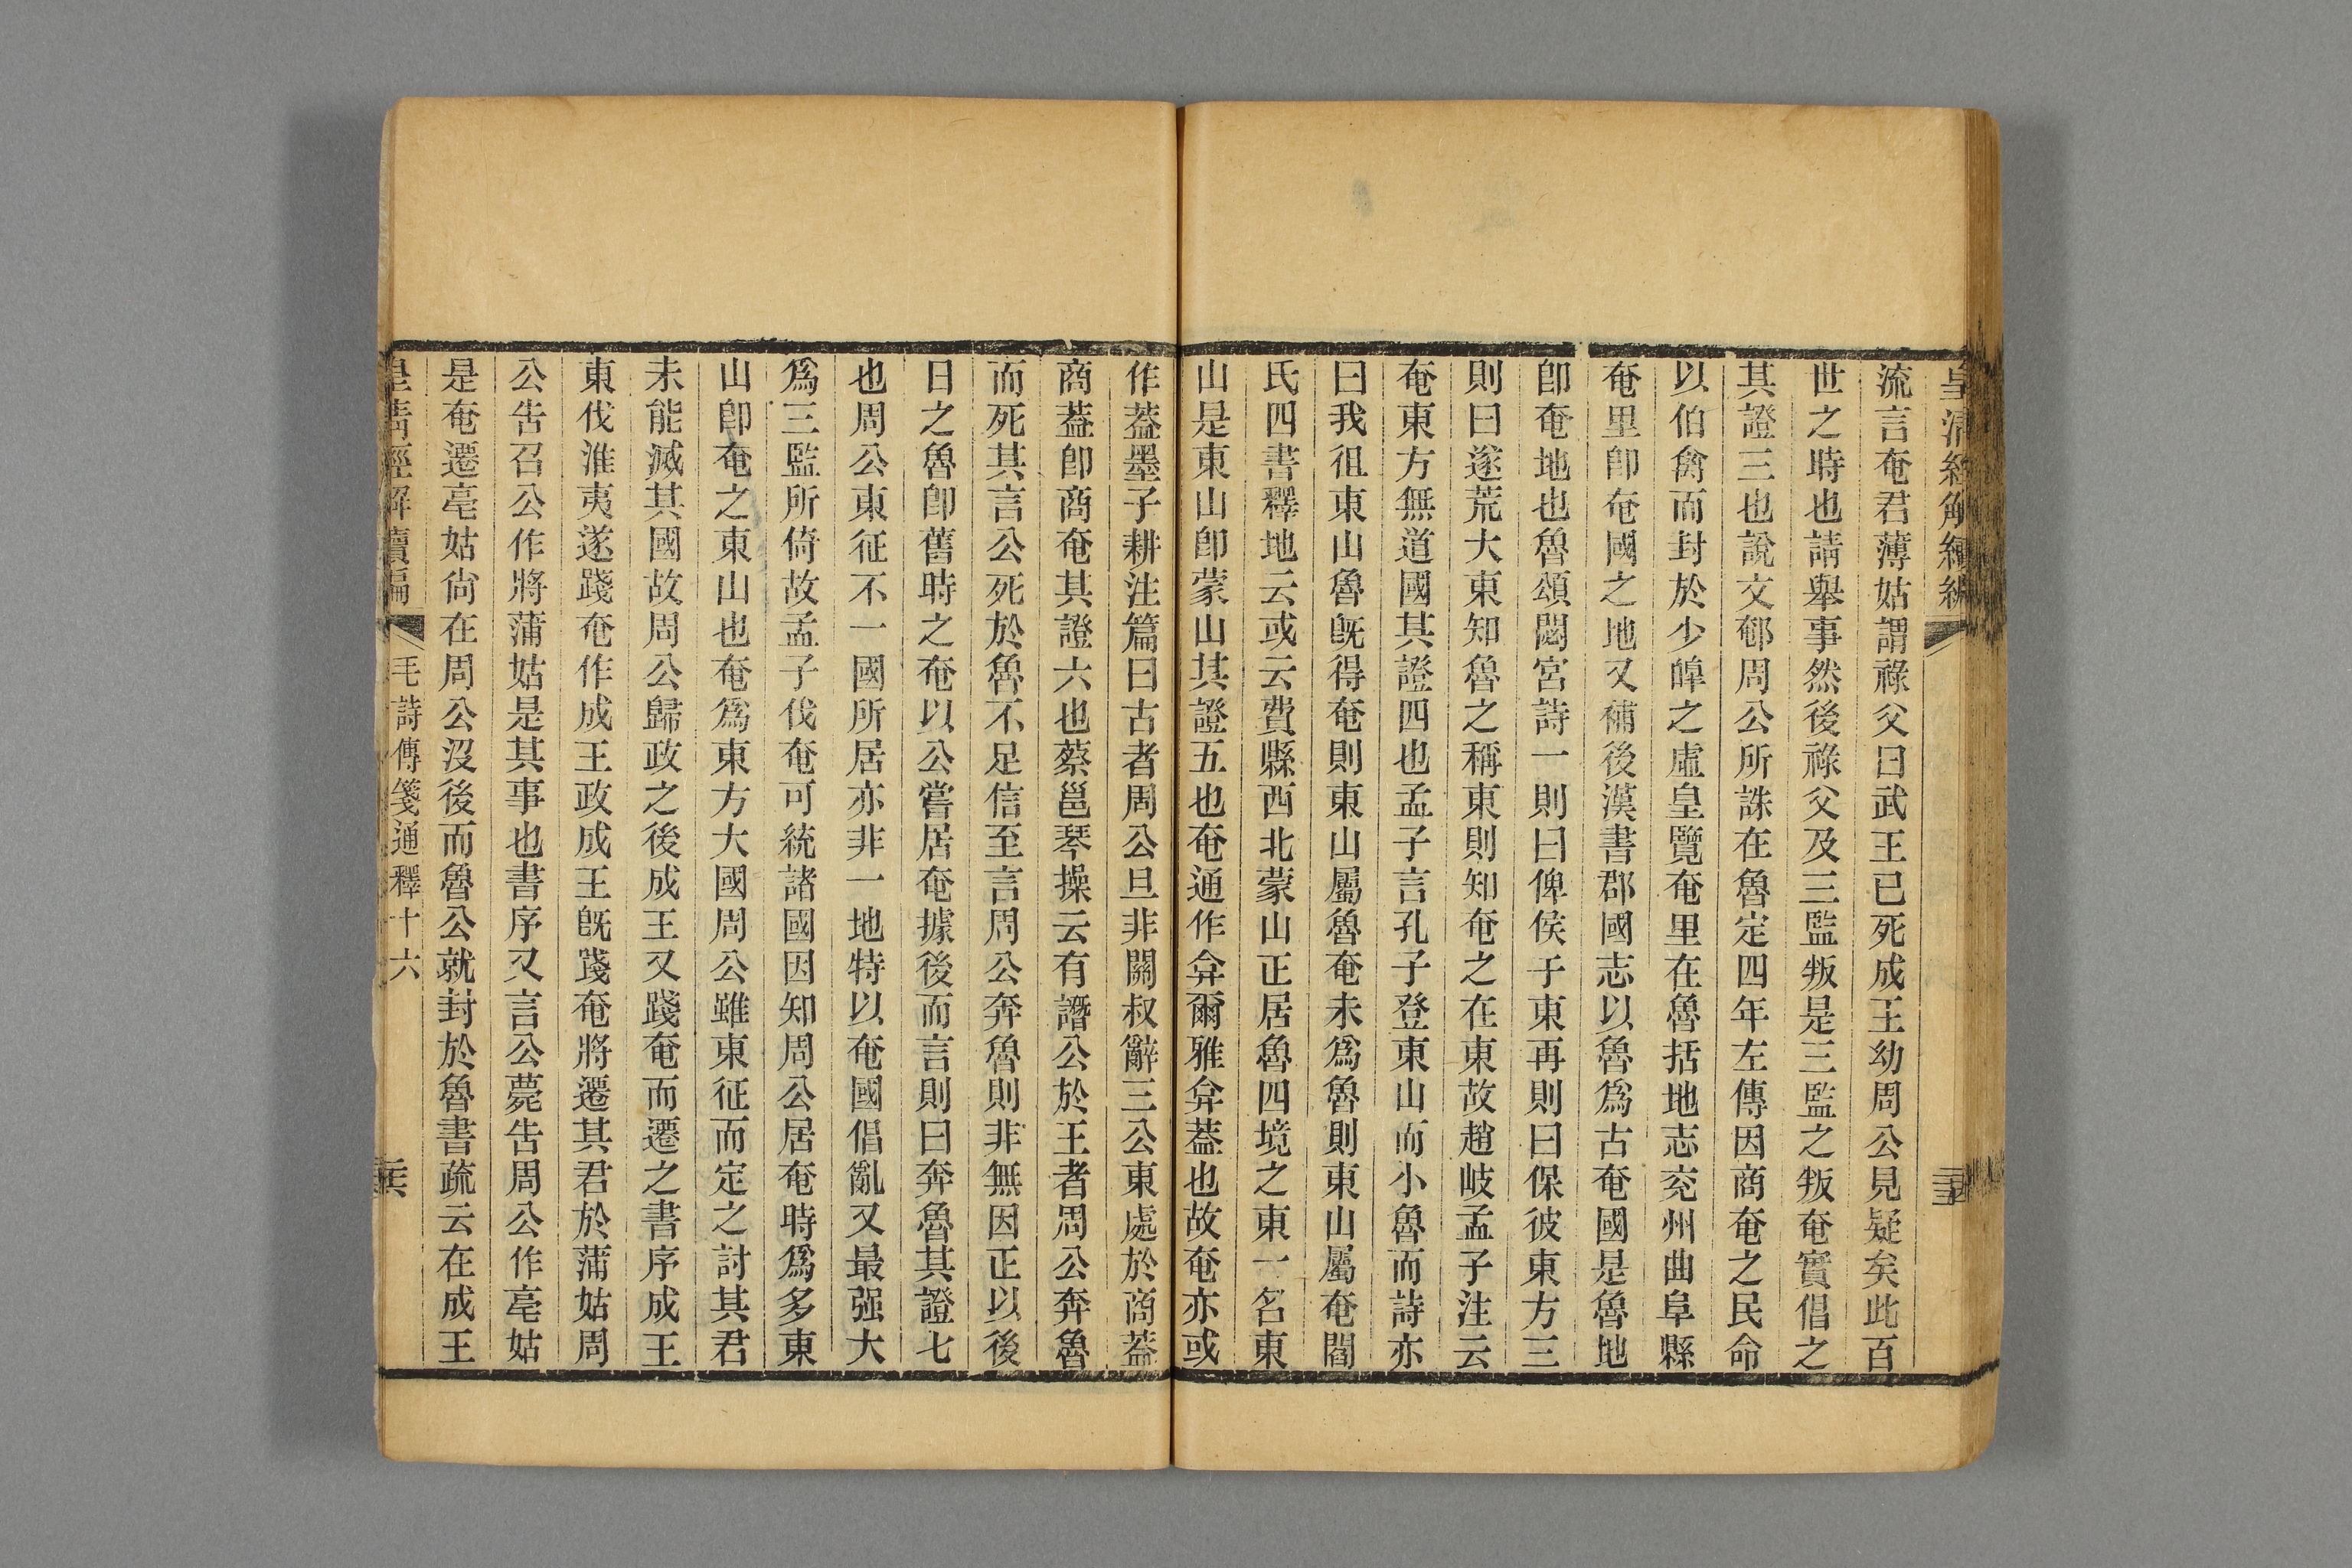 皇清經解續編
流言奄君薄姑謂祿父曰武王已死成王幼周公見疑矣此百
世之時也請舉事然後祿父及三監叛是三監之叛奄實倡之
其證三也說文䣍周公所誅在魯定四年左傳因商奄之民命
以伯禽而封於少皥之虛皇覽奄里在魯括地志兖州曲阜縣
奄里卽奄國之地又補後漢書郡國志以魯爲古奄國是魯地
卽奄地也魯頌閟宮詩一則曰俾侯于東再則曰保彼東方三
則曰遂荒大東知魯之稱東則知奄之在東故趙岐孟子注云
奄東方無道國其證四也孟子言孔子登東山而小魯而詩亦
曰我徂東山魯旣得奄則東山屬魯奄未爲魯則東山屬奄閻
氏四書釋地云或云費縣西北蒙山正居魯四境之東一名東
山是東山卽蒙山其證五也奄通作弇爾雅弇葢也故奄亦或
作葢墨子耕注篇曰古者周公旦非關叔辭三公東處於商葢
商葢卽商奄其證六也蔡邕琴操云有譖公於王者周公奔魯
而死其言公死於魯不足信至言周公奔魯則非無因正以後
日之魯卽舊時之奄以公嘗居奄據後而言則曰奔魯其證七
也周公東征不一國所居亦非一地特以奄國倡亂又最强大
爲三監所倚故孟子伐奄可統諸國因知周公居奄時爲多東
山卽奄之東山也奄爲東方大國周公雖東征而定之討其君
未能滅其國故周公歸政之後成王又踐奄而遷之書序成王
東伐淮夷遂踐奄作成王政成王旣踐奄將遷其君於蒲姑周
公吿召公作將蒲姑是其事也書序又言公薨吿周公作亳姑
是奄遷亳姑尙在周公沒後而魯公就封於魯書疏云在成王
皇淸經解續編
毛詩傳箋通釋十六